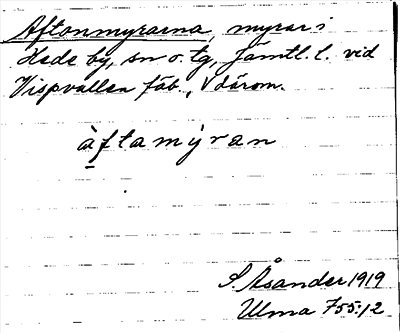 Aftonmyrarna, myrar i
Hede by, sn o. tg, Jämtl. l. vid
Vispvallen fäb., V därom.
àftamýran
S Åsander 1919
Ulma 755:12